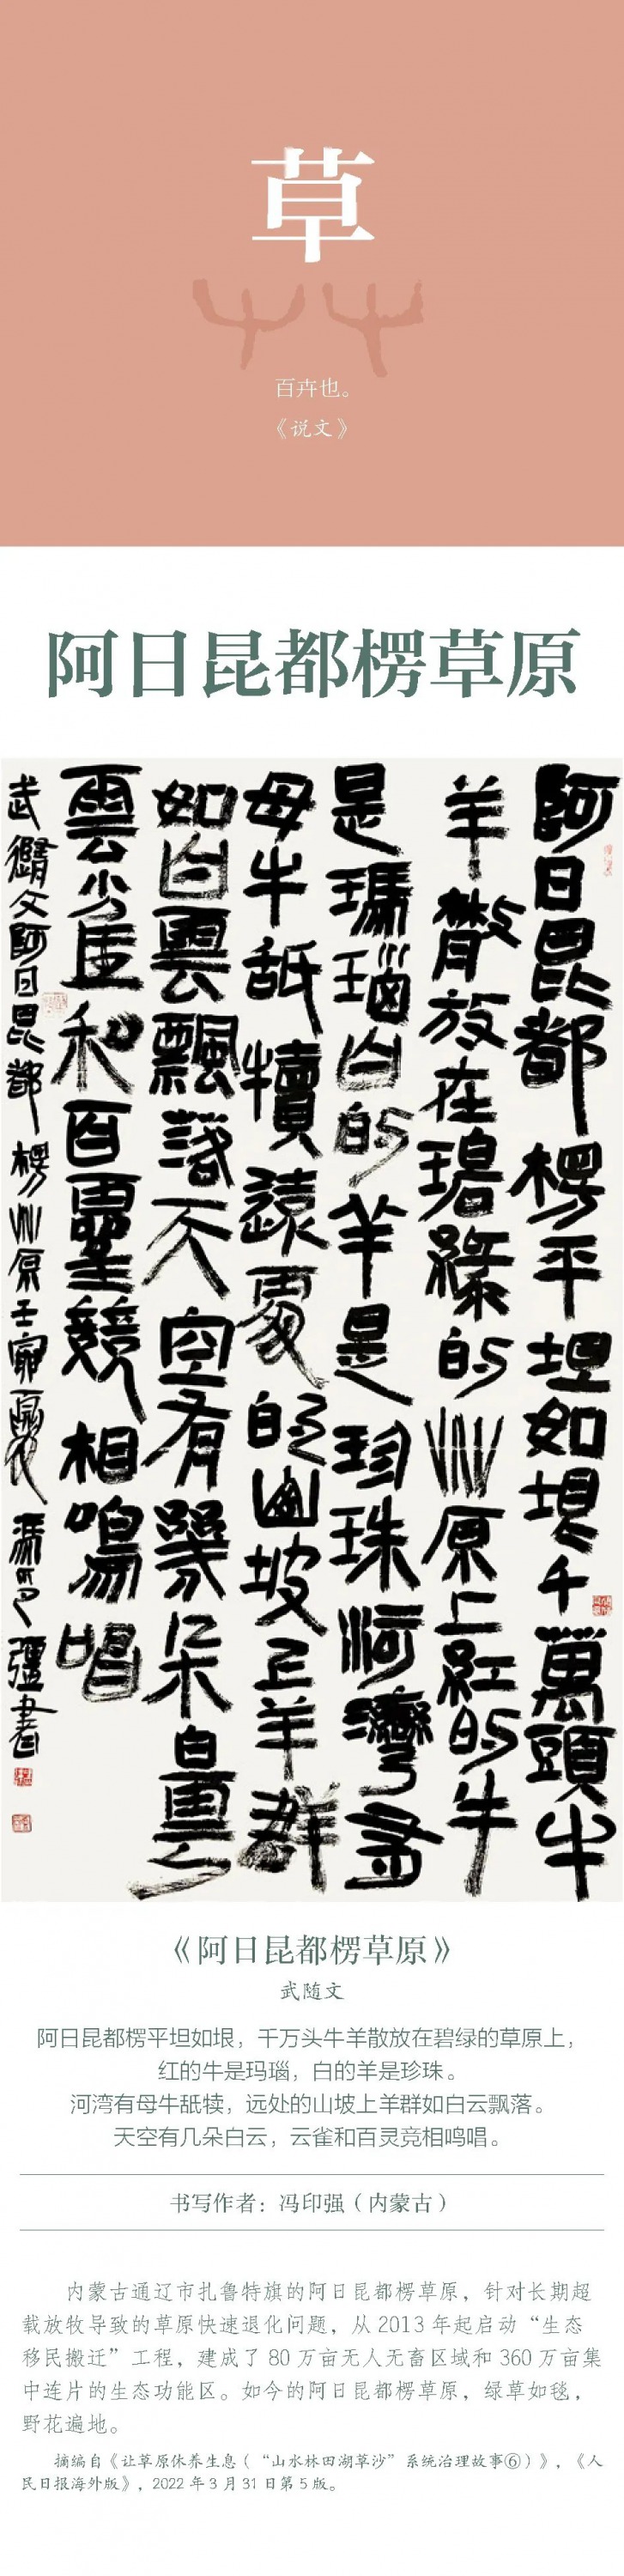 草
百卉也。
《说文》
阿日昆都楞草原
阿日昆都楞平坦如垠千萬頭牛
羊散放在碧綠的艸原上紅的牛
是瑪瑙白的羊是珍珠河灣有
母牛舐犢遠處的山坡上羊群
如白雲飄落天空有幾朵白雲
雲雀和百靈競相鳴唱
武隨文阿日昆都楞艸原壬寅夏馮印彊書
《阿日昆都楞草原》
武随文
阿日昆都楞平坦如垠，千万头牛羊散放在碧绿的草原上，
红的牛是玛瑙，白的羊是珍珠。
河湾有母牛舐犊，远处的山坡上羊群如白云飘落。
天空有几朵白云，云雀和百灵竞相鸣唱。
书写作者：冯印强（内蒙古）
内蒙古通辽市扎鲁特旗的阿日昆都楞草原，针对长期超
载放牧导致的草原快速退化问题，从 2013 年起启动“生态
移民搬迁”工程，建成了 80 万亩无人无畜区域和 360 万亩集
中连片的生态功能区。如今的阿日昆都楞草原，绿草如毯，
野花遍地。
摘编自《让草原休养生息（“山水林田湖草沙”系统治理故事⑥）》，《人
民日报海外版》，2022 年 3 月 31 日第 5 版。